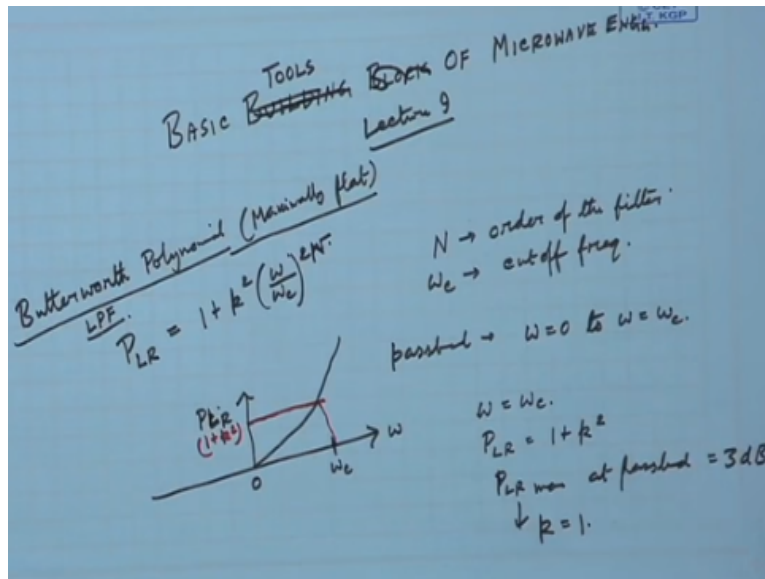 T. KGP
TOOLS
BASIC BUILDING BLOCK OF MICROWAVE ENGG.
Lecture 9
Butterworth Polynomial (Maximally flat)
LPF.
P_LR = 1 + k² (ω/ω_c)^2N.
N → order of the filter.
ω_c → cutoff freq.
passband → ω=0 to ω=ω_c.
P_LR
(1+k²)
0
ω_c
ω
ω = ω_c.
P_LR = 1+k²
P_LR max at passband = 3dB
↓ k = 1.